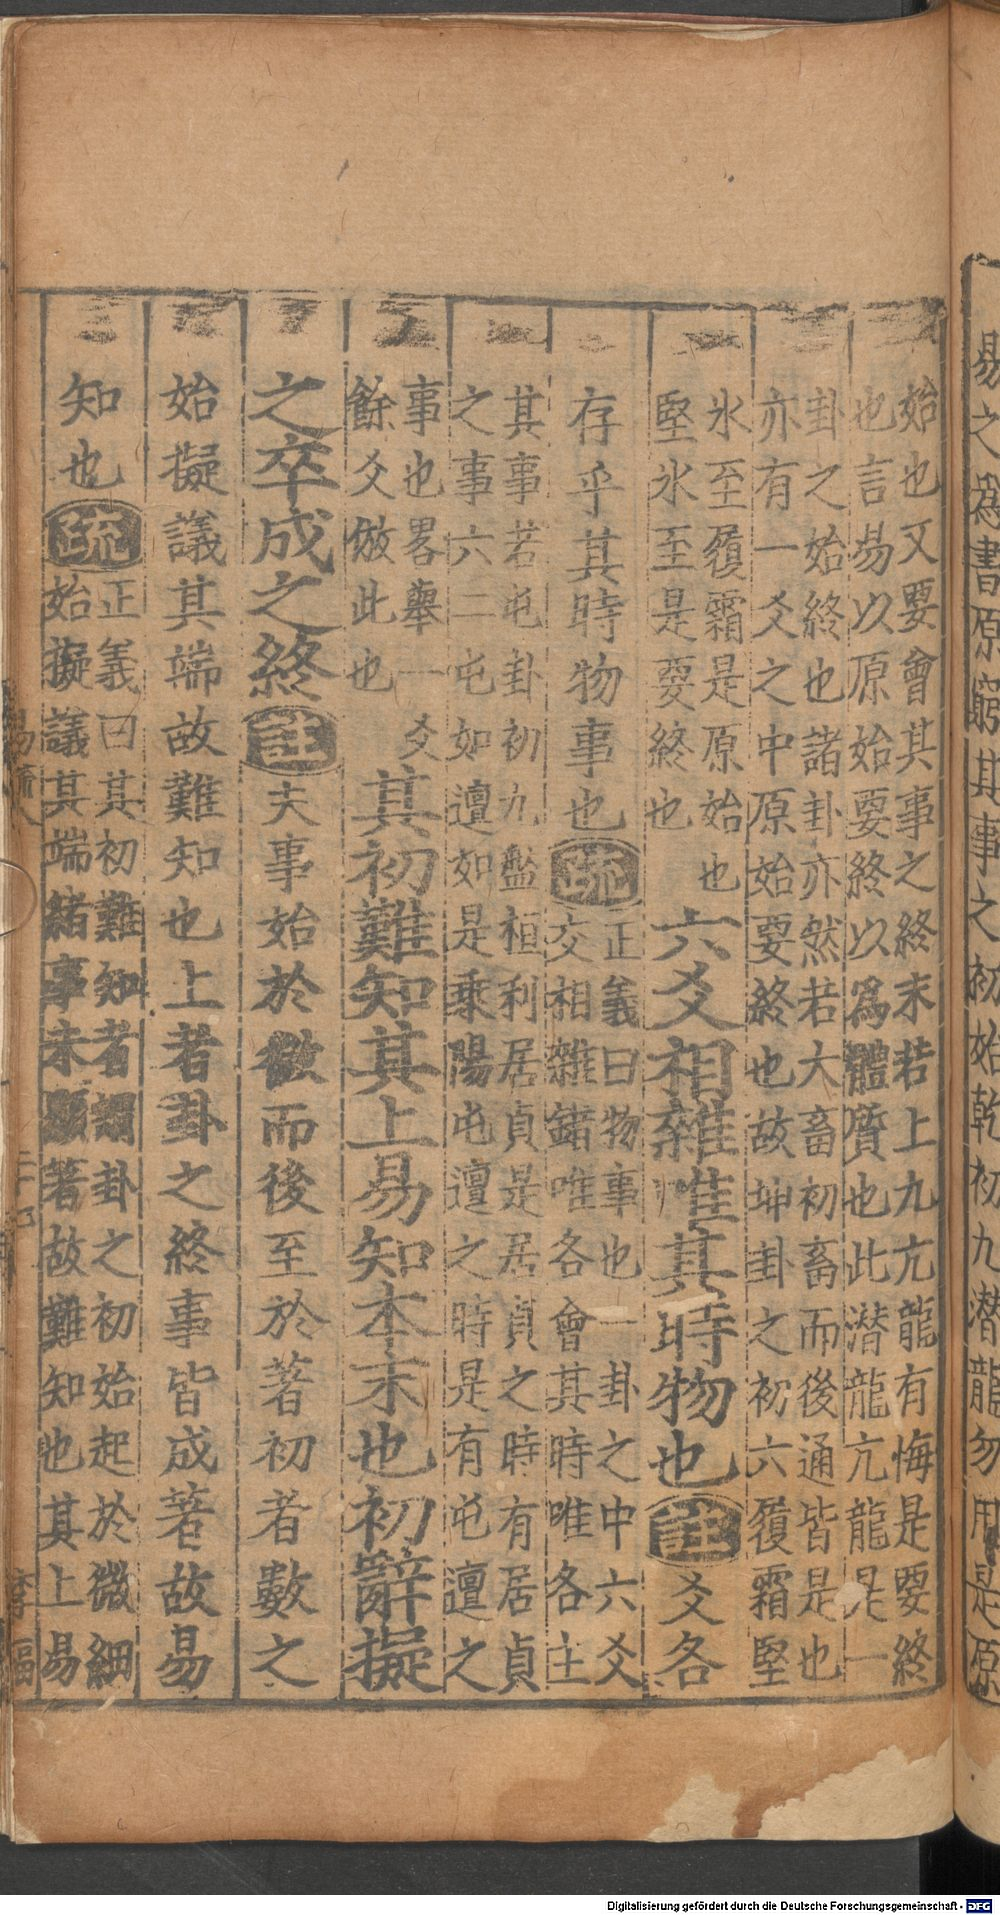 易之爲書原窮其事之初始乾初九潛龍勿用是原
始也又要會其事之終末若上九亢龍有悔是要終
也言易以原始要終以爲體質也此潛龍亢龍是一
卦之始終也諸卦亦然若大畜初畜而後通皆是也
亦有一爻之中原始要終也故坤卦之初六履霜堅
氷至履霜是原始也
堅氷至是要終也
六爻相雜唯其時物也註爻各
存乎其時物事也疏
正義曰物事也一卦之中六爻
交相雜錯唯各會其時唯各主
其事若屯卦初九盤桓利居貞是居貞之時有居貞
之事六二屯如邅如是乘陽屯邅之時是有屯邅之
事也畧舉一爻
餘爻倣此也
其初難知其上易知本末也初辭擬
之卒成之終註夫事始於微而後至於著初者數之
始擬議其端故難知也上者卦之終事皆成著故易
知也疏
正義曰其初難知者謂卦之初始起於微細
始擬議其端緒事未顯著故難知也其上易
Digitalisierung gefördert durch die Deutsche Forschungsgemeinschaft - DFG